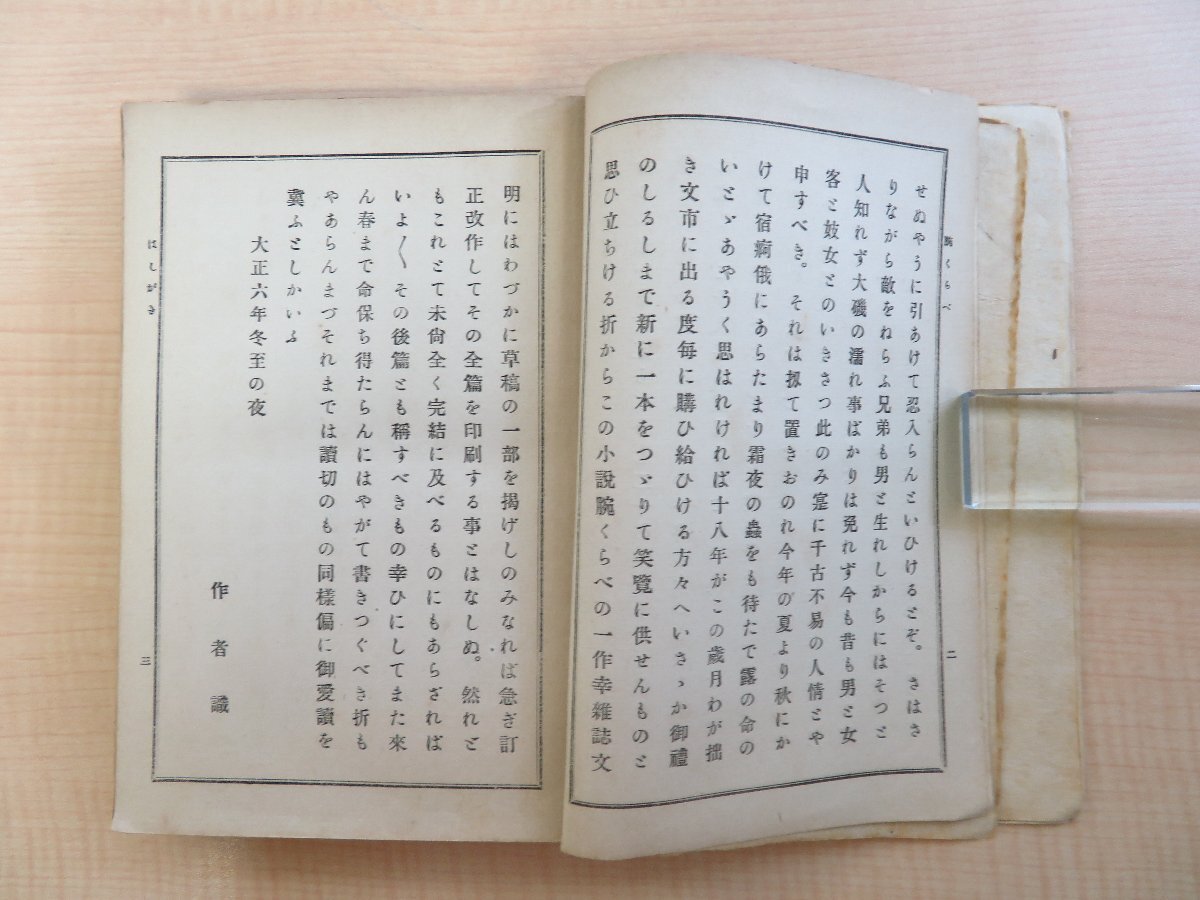 腕くらべ
二
せぬやうに引あけて忍入らんといひけるとぞ。さはさ
りながら敵をねらふ兄弟も男と生れしからにはそつと
人知れず大磯の濡れ事ばかりは免れず今も昔も男と女
客と妓女とのいきさつ此のみ寔に千古不易の人情とや
申すべき。それは扨て置きおのれ今年の夏より秋にか
けて宿痾俄にあらたまり霜夜の蟲をも待たで露の命の
いとゞあやうく思はれければ十八年がこの歲月わが拙
き文市に出る度每に購ひ給ひける方々へいさゝか御禮
のしるしまで新に一本をつゞりて笑覽に供せんものと
思ひ立ちける折からこの小說腕くらべの一作幸雜誌文
明にはわづかに草稿の一部を揭げしのみなれば急ぎ訂
正改作してその全篇を印刷する事とはなしぬ。然れど
もこれとて未尙全く完結に及べるものにもあらざれば
いよ〱その後篇とも稱すべきもの幸ひにしてまた來
ん春まで命保ち得たらんにはやがて書きつぐべき折も
やあらんまづそれまでは讀切のもの同樣偏に御愛讀を
冀ふとしかいふ
大正六年冬至の夜
作者識
はしがき
三